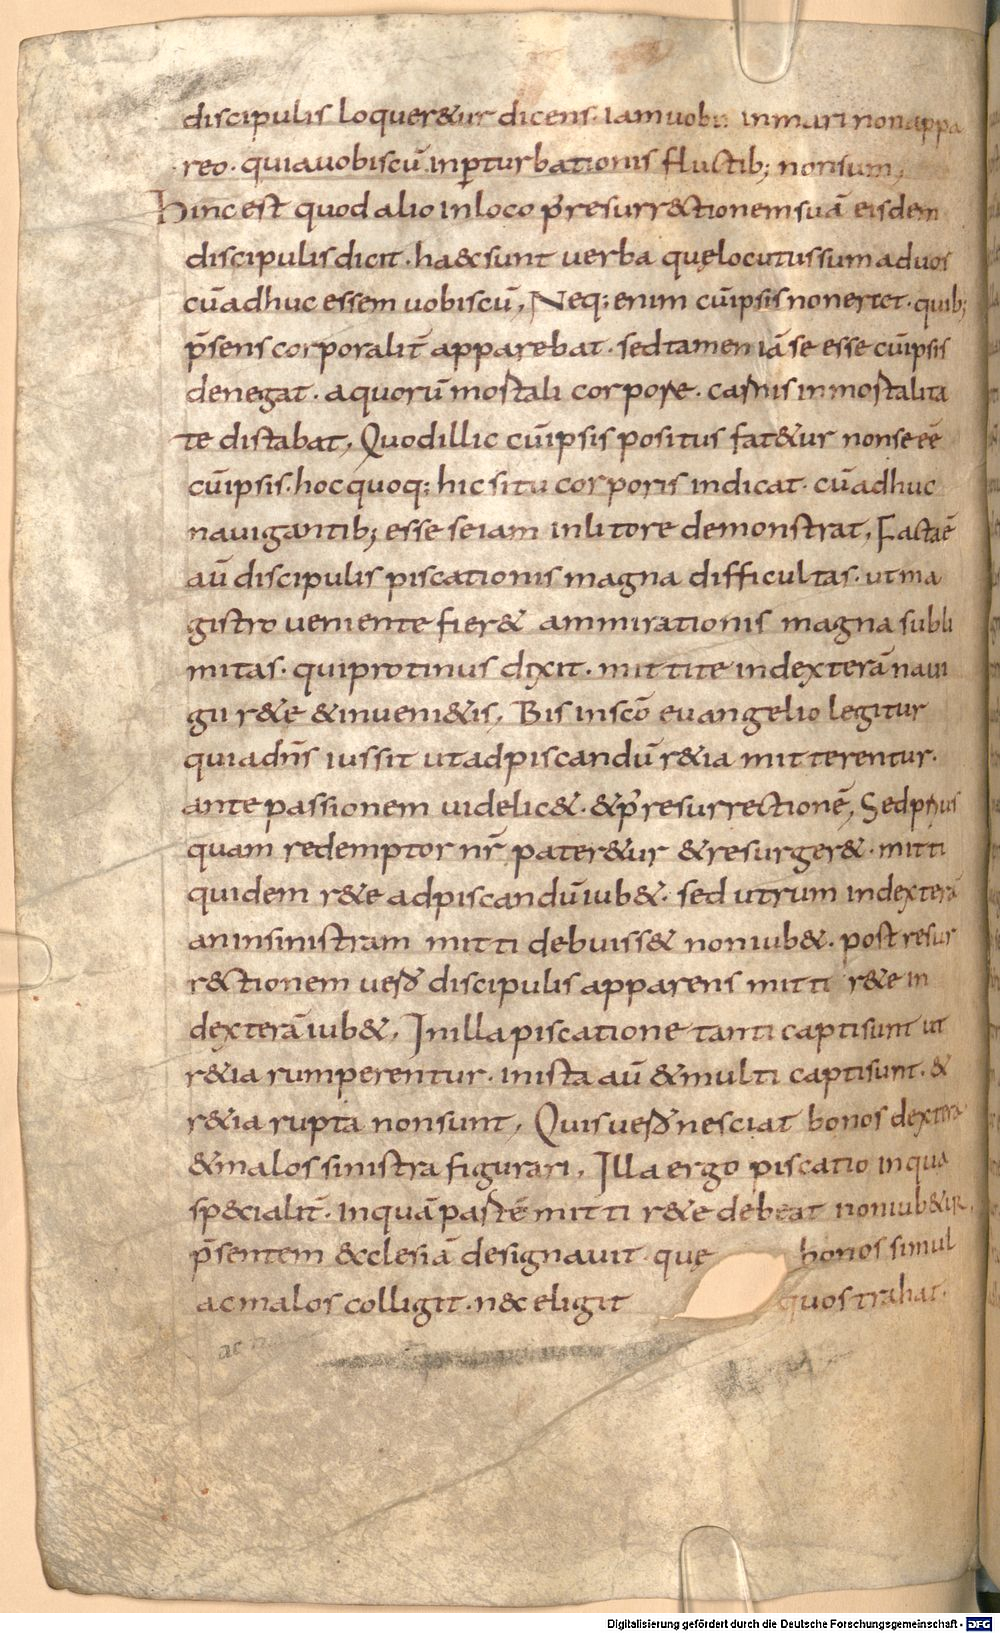 discipulis loquer&ur dicens. iam uobis in mari non appa
reo. quia uobiscū in ꝑturbationis fluctib; non sum,
Hinc est quod alio in loco p᷒ resurr&tionem suā eisdem
discipulis dicit. ha&c sunt uerba quę locutus sum ad uos
cū adhuc essem uobiscū, Neq; enim cū ipsis non er&ot. quib;
p̄sens corporalit̄ apparebat. sed tamen iā se esse cū ipsis
denegat. a quorū mortali corpore. carnis inmortalita
te distabat, Quod illic cū ipsis positus fat&ur non se eē
cū ipsis. hoc quoq; hic situ corporis indicat. cū adhuc
nauigantib; esse se iam in litore demonstrat, Facta ē
aū discipulis piscationis magna difficultas. ut ma
gistro ueniente fier& ammirationis magna subli
mitas. qui protinus dixit. mittite in dexterā naui
gii r&e & inueni&is, Bis in sc̄o euangelio legitur
quia dn̄s iussit ut ad piscandū r&ia mitterentur.
ante passionem uidelic&. & p᷒ resurrectionē, Sed prius
quam redemptor nr̄ pater&ur & resurger&. mitti
quidem r&e ad piscandū iub&. sed utrum in dexterā
an in sinistram mitti debuiss& non iub&. post resur
r&tionem uero discipulis apparens mitti r&e in
dexterā iub&, In illa piscatione tanti capti sunt ut
r&ia rumperentur. in ista aū & multi capti sunt. &
r&ia rupta non sunt, Quis uero nesciat bonos dextera
& malos sinistra figurari, Illa ergo piscatio in qua
sp&cialit̄. in quā partē mitti r&e debeat non iub&ur,
p̄sentem &cclesiā designauit. quę bonos simul
ac malos colligit. n&c eligit quos trahat.
ac
Digitalisierung gefördert durch die Deutsche Forschungsgemeinschaft - DFG